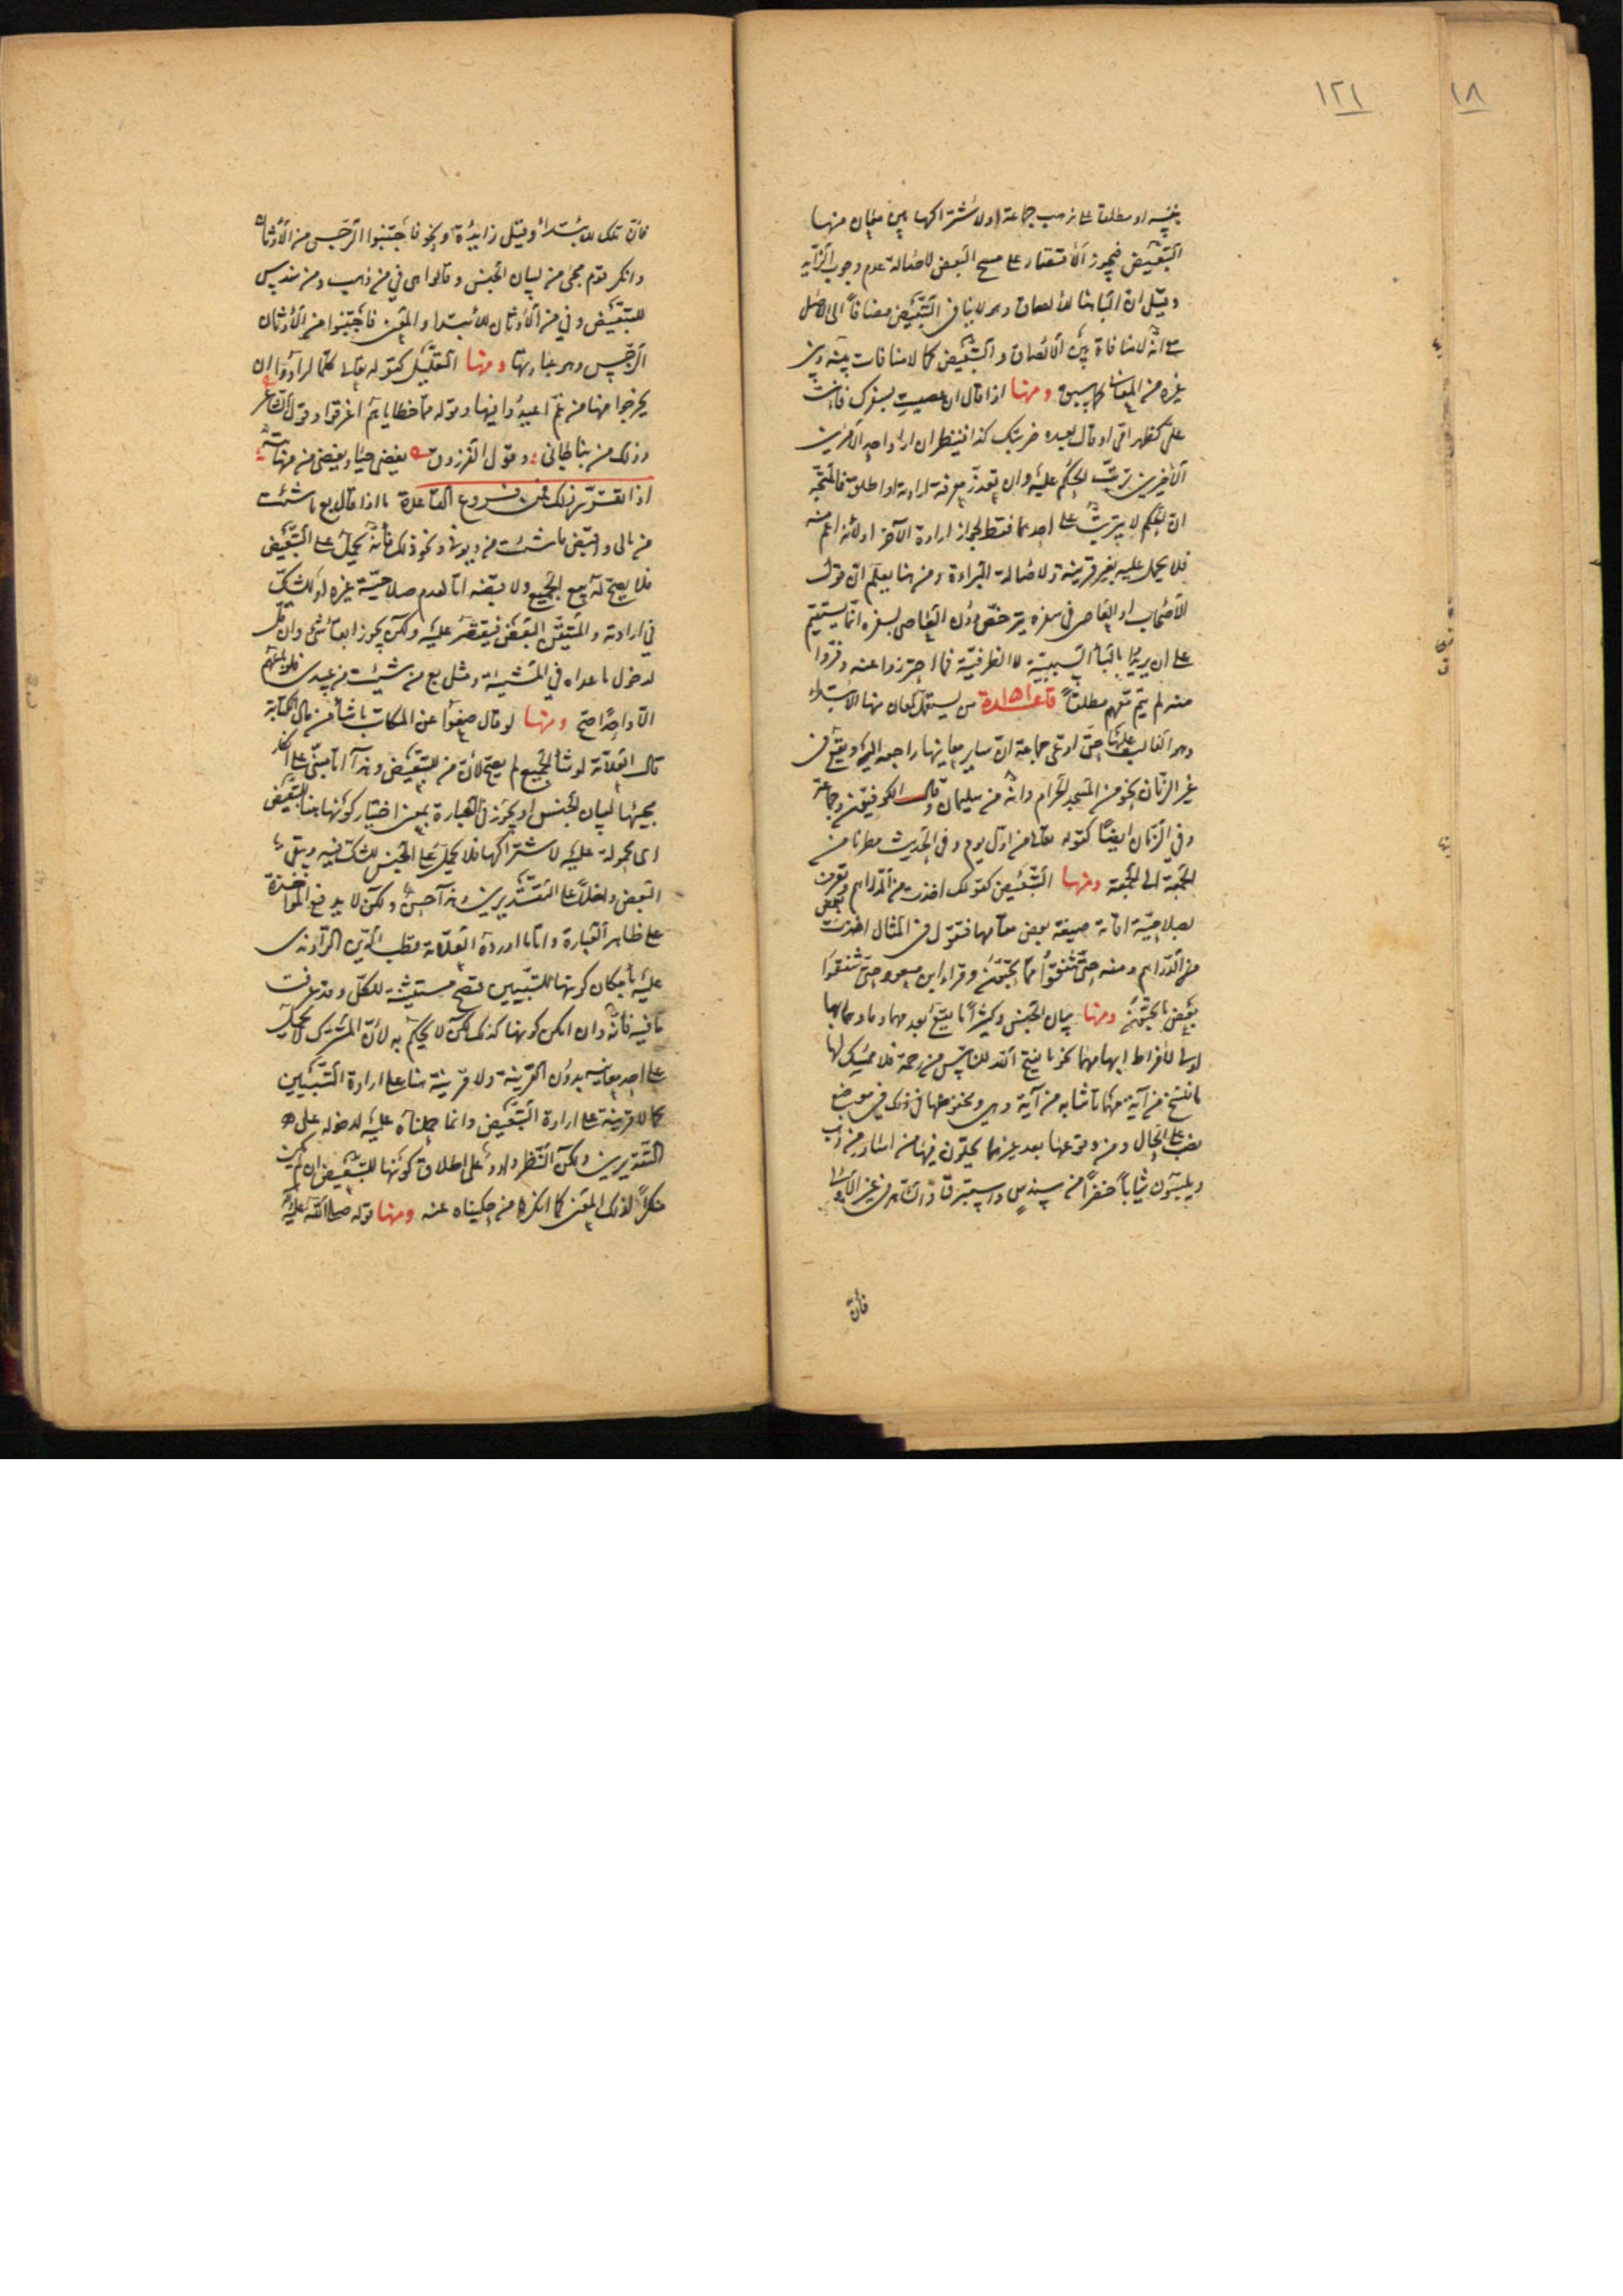 ١٨
١٢١
بنفسه او مطلقا على مذهب جماعة او لاشتراكها بين معان منها
التبعيض فيجوز الاقتصار على مسح البعض لاصالة عدم وجوب الزايد
وقيل ان الباء هنا للالصاق وهو لا ينافى التبعيض مضافا الى الاصل
على انه لا منافاة بين الالصاق والتبعيض كما لا منافات بينه وبين
غيره من المعانى كما سبق ومنها اذا قال ان عصيت بسفرك فانت
على كظهر امى او قال لعبده ضربتك كذا فينظر ان اراد احد الامرين
الاخيرين ترتب الحكم عليه وان تعذر معرفة ارادته او اطلق فالمتجه
ان الحكم لا يترتب على احدهما فقط لجواز ارادة الآخر او لانه اعم منه
فلا يحمل عليه بغير قرينة ولاصالة البراءة ومن هنا يعلم ان قول
الاصحاب او العاصى فى سفره يترخص دون العاصى بسفره انما يستقيم
على ان يريدوا بالباء السببية لا الظرفية فما احترزوا عنه وفروا
منه لم يتم لهم مطلقا قاعدة من يستعمل لمعان منها الابتداء
وهو الغالب عليها حتى ادعى جماعة ان ساير معانيها راجعه اليه ويقع فى
غير الزمان نحو من المسجد الحرام وانه من سليمان وقال الكوفيون وجماعة
وفي الزمان ايضا كقوله تعالى من اول يوم وفى الحديث مطرنا من
الجمعة الى الجمعة ومنها التبعيض كقولك اخذت من الدراهم وتعرف
بصلاحية اقامة صيغة بعض مقامها فتقول فى المثال اخذت بعض
من الدراهم ومنه حتى تنفقوا مما تحبون وقراء ابن مسعود حتى تنفقوا
بعض ما تحبون ومنها بيان الجنس وكثيرا ما يقع بعد مهما وما وهما بها
اولى لافراط ابهامهما نحو ما يفتح الله للناس من رحمة فلا ممسك لها
ما ننسخ من آية مهما تاتنا به من آية وهى ومخفوضها فى ذلك فى موضع
نصب على الحال ومن وقوعها بعد غيرهما يحلون فيها من اساور من ذهب
ويلبسون ثيابا خضرا من سندس واستبرق والشاهد فى غير الاولى
فان
فان تلك للابتداء وقيل زايدة ونحو فاجتنبوا الرجس من الاوثان
وانكر قوم مجئ من لبيان الجنس وقالوا هى في من ذهب ومن سندس
للتبعيض وفي من الاوثان للابتداء والمعنى فاجتنبوا من الاوثان
الرجس وهو عبادتها ومنها التعليل كقوله تعالى كلما ارادوا ان
يخرجوا منها من غم اعيدوا فيها وقوله مما خطاياهم اغرقوا وقول الشاعر
وذلك من نبا جانى وقول الفرزدق يغضى حياء ويغضى من مهابته
اذا تقرر ذلك فمن فروع القاعدة ما اذا قال بع ما شئت
من مالى واقبض ما شئت من ديونى ونحو ذلك فانه يحمل على التبعيض
فلا يصح له بيع الجميع ولا قبضه اما لعدم صلاحية غيره او للشك
في ارادته والمتيقن البعض فيقتصر عليه ولكن يجوز ابقاء شئ وان قل
لدخول ما عداه في المشيئة ومثل بع من شئت من عبيدى فلو باعهم
الا واحدا صح ومنها لو قال ضعوا عن المكاتب ما شاء من مال الكتابة
قال العلامة لو شاء الجميع لم يصح لان من للتبعيض وهذا اما مبنى على انكار
مجيئها لبيان الجنس او يجوز فى العبارة بمعنى اختيار كونها هنا للتبعيض
اى محمولة عليه لاشتراكها فلا يحمل على الجنس للشك فيه ويبقى
البعض داخلا على التقديرين وهذا حسن ولكن لا يدفع المواخذة
على ظاهر العبارة واما ما اورده العلامة قطب الدين الراوندى
عليه بامكان كونها للتبيين فتصح مشيئة للكل وقد عرفت
ما فيه فانه وان امكن كونها كذلك لكن لا يحكم به لان المشترك لا يحمل
على احد معانيه بدون القرينة ولا قرينة هنا على ارادة التبيين
كما لا قرينة على ارادة التبعيض وانما حملناه عليه لدخوله على
التقديرين ولكن النظر وارد على اطلاق كونها للتبعيض ان لم يكن
منكرا لذلك المعنى كما انكره من حكيناه عنه ومنها قوله صلى الله عليه